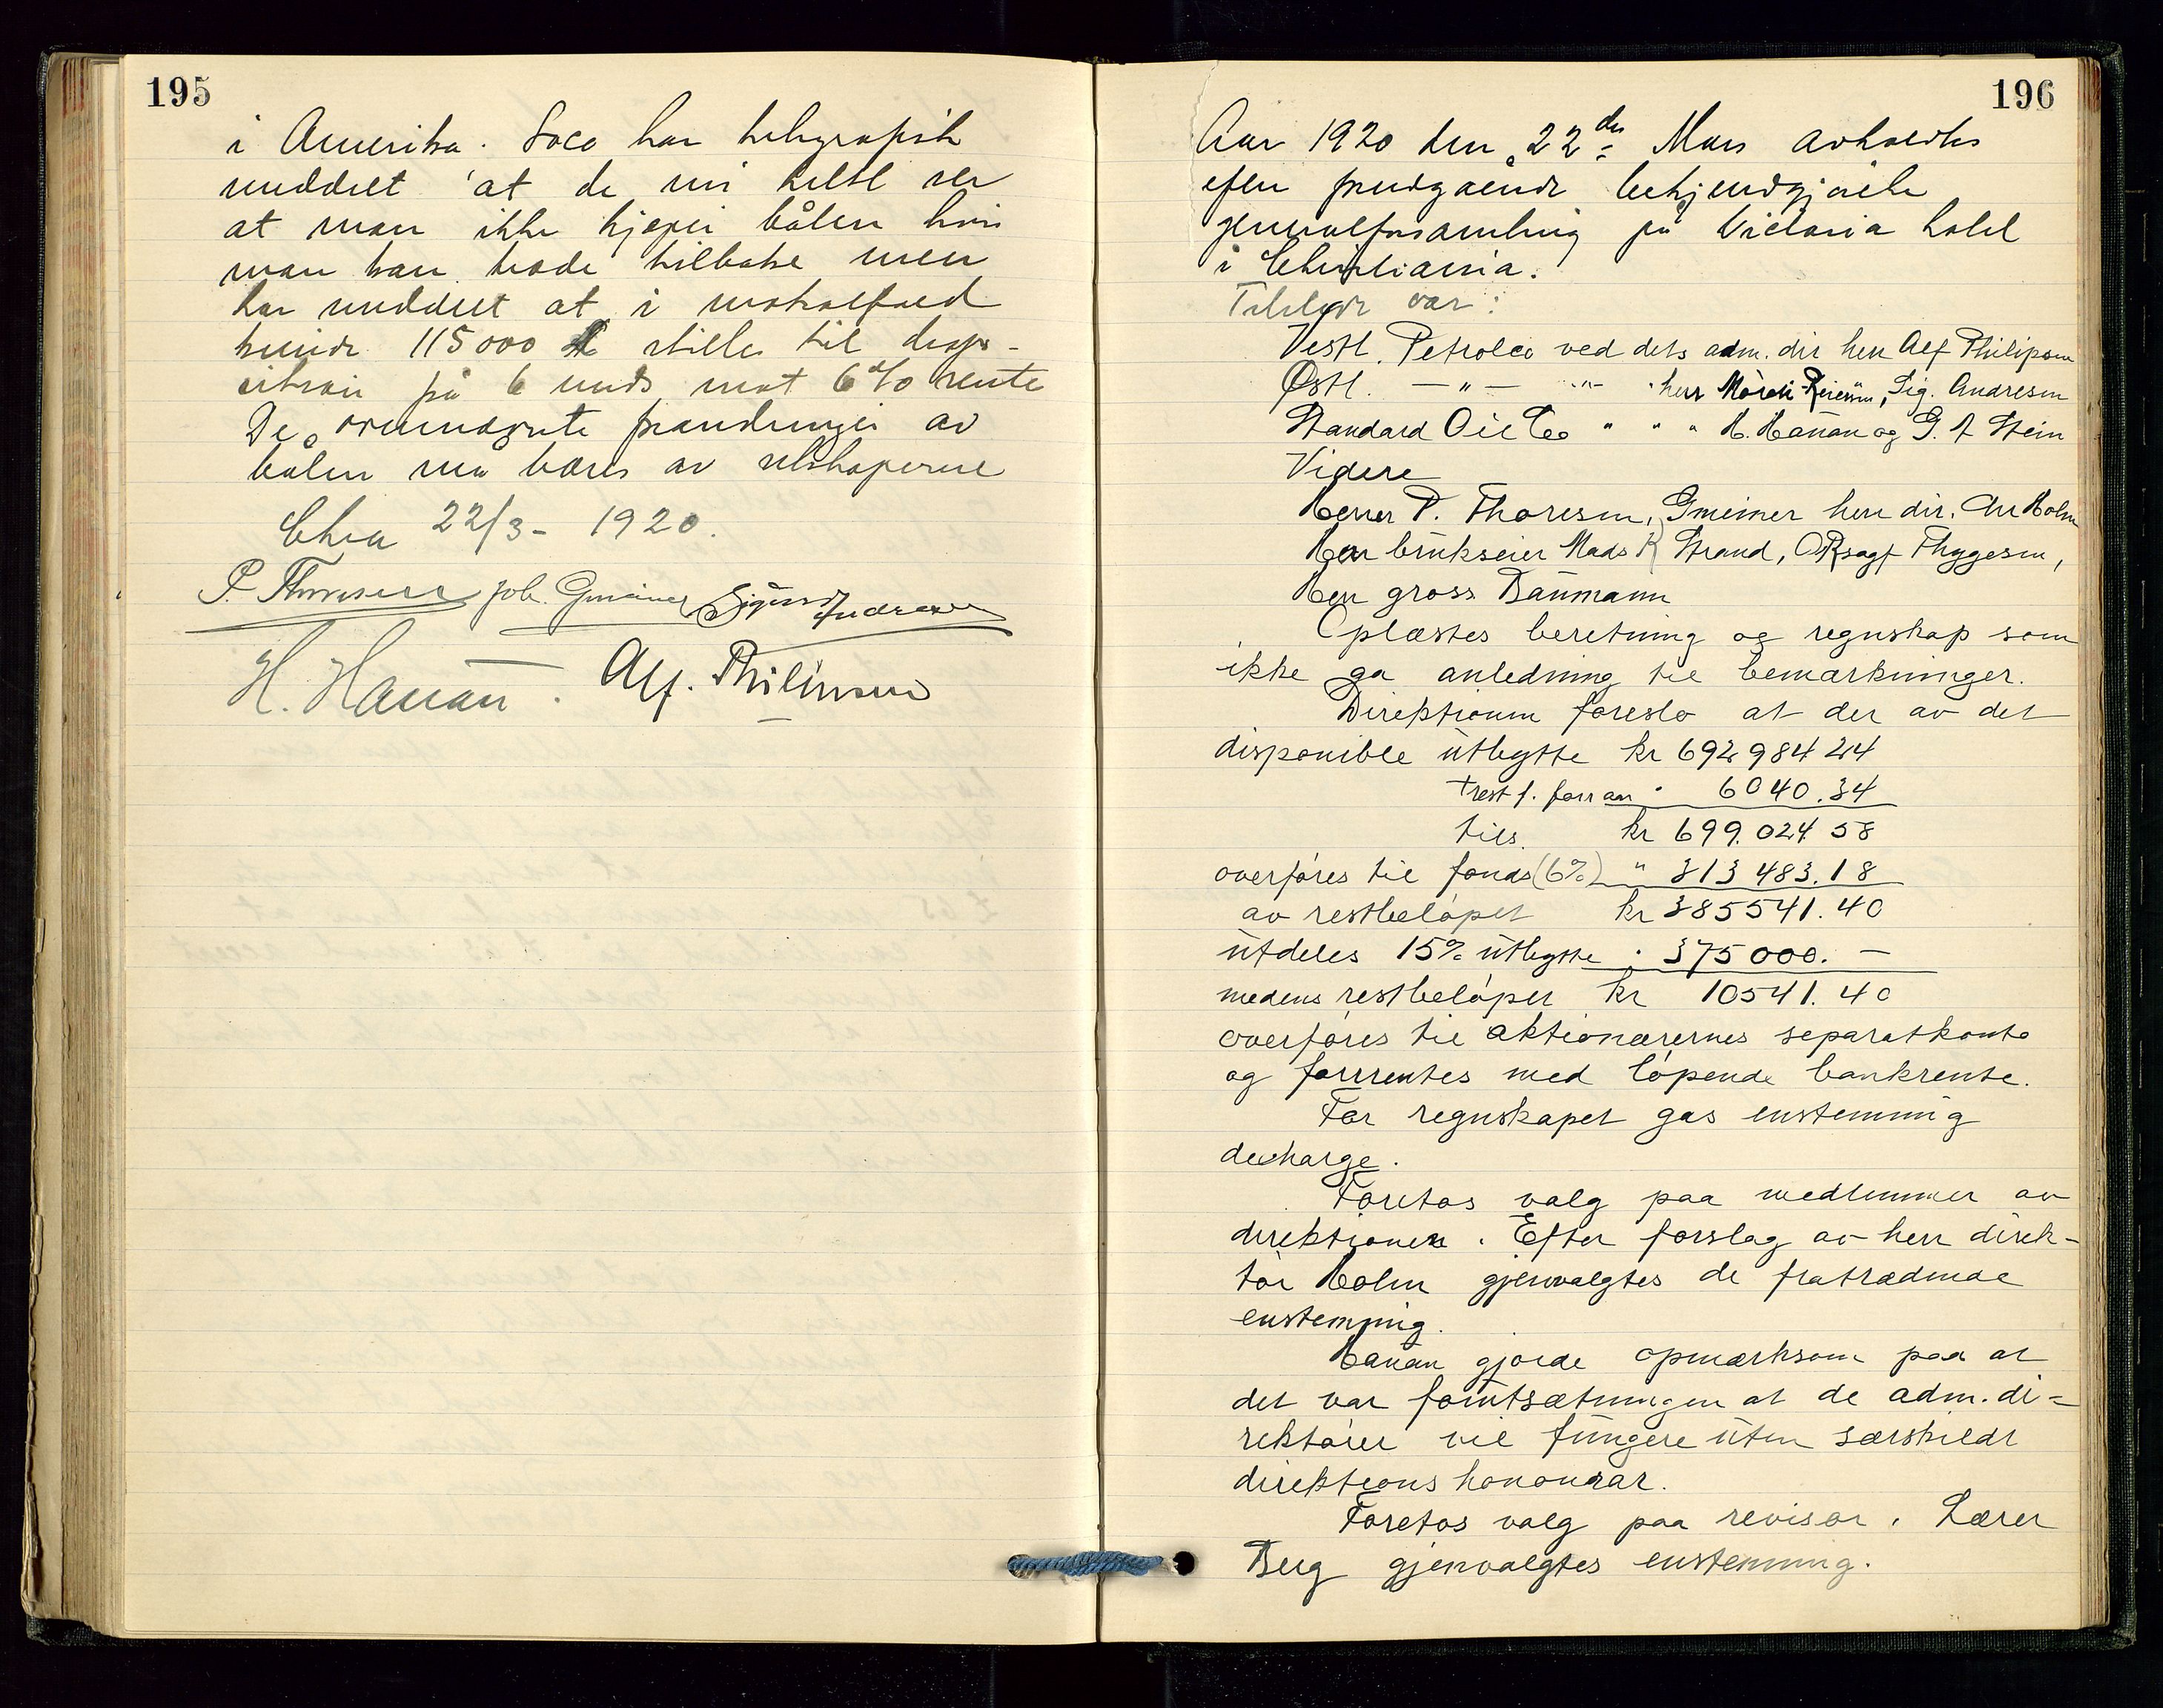 195
i Amerika. Soco har telegrafisk
meddelt at de vil helst se
at man ikke kjøper båten hvis
man kan træde tilbake men
har meddelt at i motsatfald
kunde 115000 £ stilles til dispo-
sition på 6 mnds mot 6% rente
De ovennævnte forandringer av
båten må bæres av selskaperne
Chra 22/3 - 1920.
P. Thoresen Joh. Gmeiner Sigurd Andresen
H. Hanan. Alf. Philipsen
196
Aar 1920 den 22de Mars avholdtes
efter forutgående bekjendtgjørelse
generalforsamling på Victoria hotel
i Christiania.
Tilstede var:
Vestl. Petroleo ved dets adm. dir herr Alf Philipsen
Østl. — " — " herr Sig. Andresen
Standard Oil Co " " " H. Hanan og G. A Stein
Videre
Herrer P. Thoresen, Gmeiner herr dir. Holm
Herr brukseier Mads Strand, ORsagf Thygesen,
Herr gross. Baumann
Oplæstes beretning og regnskap som
ikke ga anledning til bemærkninger.
Direktionen foreslo at der av det
disponible utbytte kr 692984 24
+ rest f. forr aar " 6040.34
tils. kr 699.024 58
overføres til fonds (6%) " 313483.18
av restbeløpet kr 385541.40
utdeles 15% utbytte " 375000. —
medens restbeløpet kr 10541.40
overføres til aktionærernes separatkonto
og forrentes med løpende bankrente.
For regnskapet gas enstemmig
decharge.
Foretos valg paa medlemmer av
direktionen. Efter forslag av herr direk-
tør Holm gjenvalgtes de fratrædende
enstemmig.
Hanan gjorde opmerksom paa at
det var forutsætningen at de adm. di-
rektører vil fungere uten særskildt
direktionshonorar.
Foretos valg paa revisor. Lærer
Berg gjenvalgtes enstemmig.